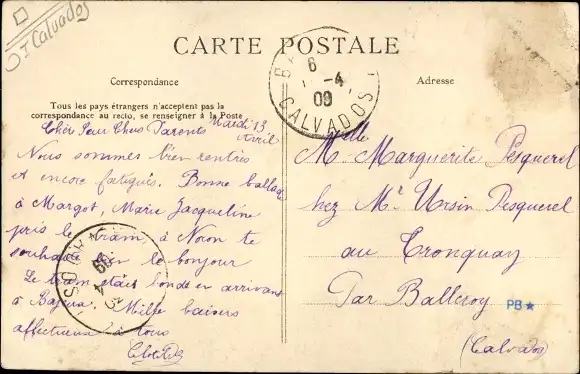 Calvados
CARTE POSTALE
Correspondance
Adresse
Tous les pays étrangers n'acceptent pas la
correspondance au recto, se renseigner à la Poste
Mardi 13
Avril
Chers Parents
Nous sommes bien rentrés
et encore fatigués. Bonne
à Margot, Marie Jacqueline
pris le tram à Noron te
le bonjour
Le tram était bondé en arrivant
à Mille baisers
affectueux à tous
Clotilde
6
-4
09
CALVADOS
09
Melle
M. Marguerite Pesquerel
chez Mr Ursin Pesquerel
au Tronquay
Par Balleroy
(Calvados)
PB★